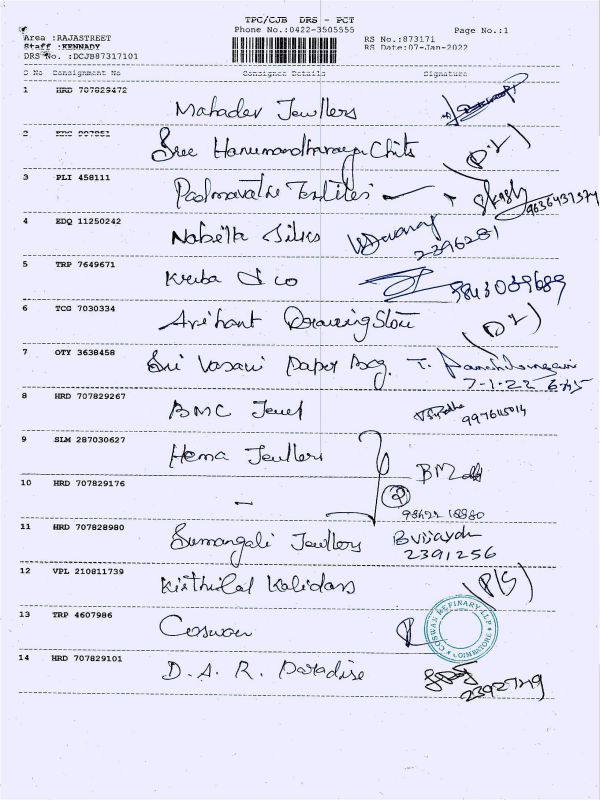 TPC/CJB DRS - PCT
Area :RAJASTREET Phone No.:0422-3505555 Page No.:1
Staff :KENNADY RS No.:873171
DRS No. :DCJB87317101 RS Date:07-Jan-2022
S No Consignment No Consignee Details Signature
1 HRD 707829472
Mahadev Jewllers
2
Sree Hanumandharaya Chits
3 PLI 458111
Padmavathi Textiles 9636437574
4 EDQ 11250242
Nabeella Silks
2396281
5 TRP 7649671
Kriba & co 9843039689
6 TCG 7030334
Arihant Drawing Store (DL)
7 OTY 3638458
Sri Vasavi Paper Bag. T.
7-1-22 6:45
8 HRD 707829267
BMC Jewel
9 SLM 287030627
Hema Jewllers
BM
10 HRD 707829176
- (2)
98422 18880
11 HRD 707828980
Sumangali Jewllers
2391256
12 VPL 210811739
Kirthilal Kalidass (P/S)
13 TRP 4607986
Coswan
COSWAN REFINARY LLP
COIMBATORE
14 HRD 707829101
D. A. R. Paradise